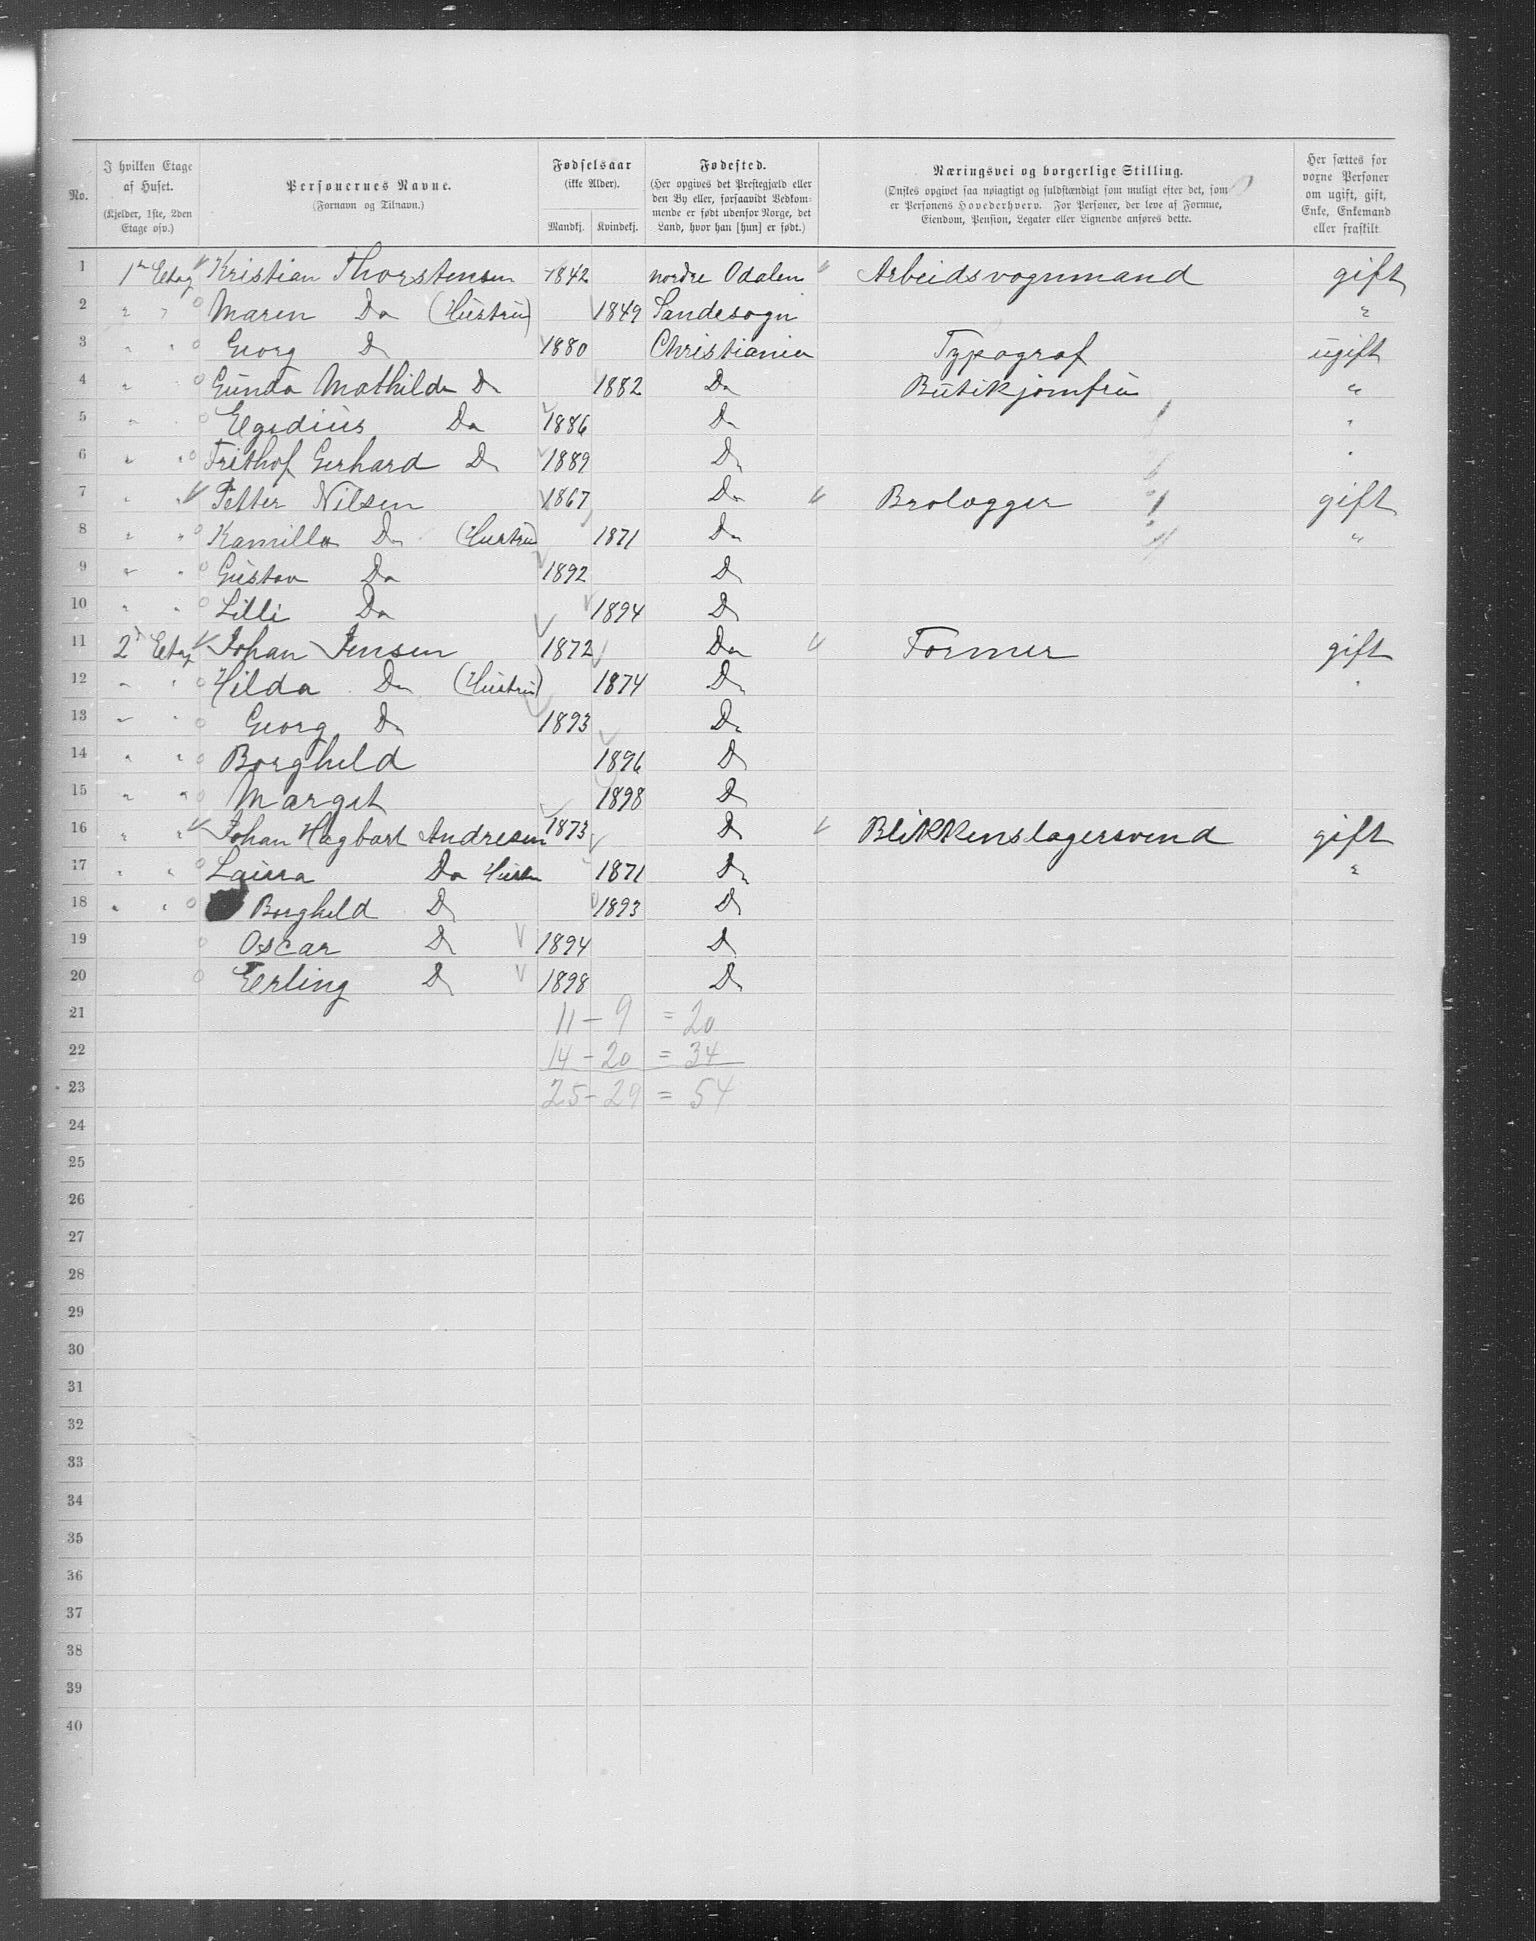 No.
I hvilken Etage af Huset.
(Kjelder, 1ste, 2den Etage osv.)
Personernes Navne.
(Fornavn og Tilnavn.)
Fødselsaar
(ikke Alder).
Mandkj. Kvindekj.
Fødested.
(Her opgives det Prestegjæld eller den By eller, forsaavidt Vedkommende er født udenfor Norge, det Land, hvor han [hun] er født.)
Næringsvei og borgerlige Stilling.
(Ønskes opgivet saa nøiagtigt og fuldstændigt som muligt efter det, som er Personens Hovederhverv. For Personer, der leve af Formue, Eiendom, Pension, Legater eller Lignende anføres dette.
Her sættes for vorne Personer om ugift, gift, Enke, Enkemand eller fraskilt.
1 1ste Etag Kristian Thorstensen 1842 nordre Odalen Arbeidsvognmand gift
2 " " Maren Do (Hustru) 1849 Sandesogn "
3 " " Georg Do 1880 Christiania Typograf ugift
4 " Gunda Mathilde Do 1882 Do Butikjomfru "
5 " Egidius Do 1886 Do "
6 " " Frithof Gerhard Do 1889 Do "
7 " " Petter Nilsen 1867 Do Brolægger gift
8 " " Kamilla Do (Hustru 1871 Do "
9 " " Gustav Do 1892 Do
10 " " Lilli Do 1894 Do
11 2d Etag Johan Jensen 1872 Do Former gift
12 " " Hilda Do (Hustru) 1874 Do "
13 " " Georg Do 1893 Do
14 " " Borghild 1896 Do
15 " " Margit 1898 Do
16 " " Johan Hagbart Andresen 1873 Do Blikkenslagersvend gift
17 " " Laura Do Hustru 1871 Do "
18 " " Borghild Do 1893 Do
19 Oscar Do 1894 Do
20 Erling Do 1898 Do
21 11 - 9 = 20
22 14 - 20 = 34
23 25 - 29 = 54
24
25
26
27
28
29
30
31
32
33
34
35
36
37
38
39
40